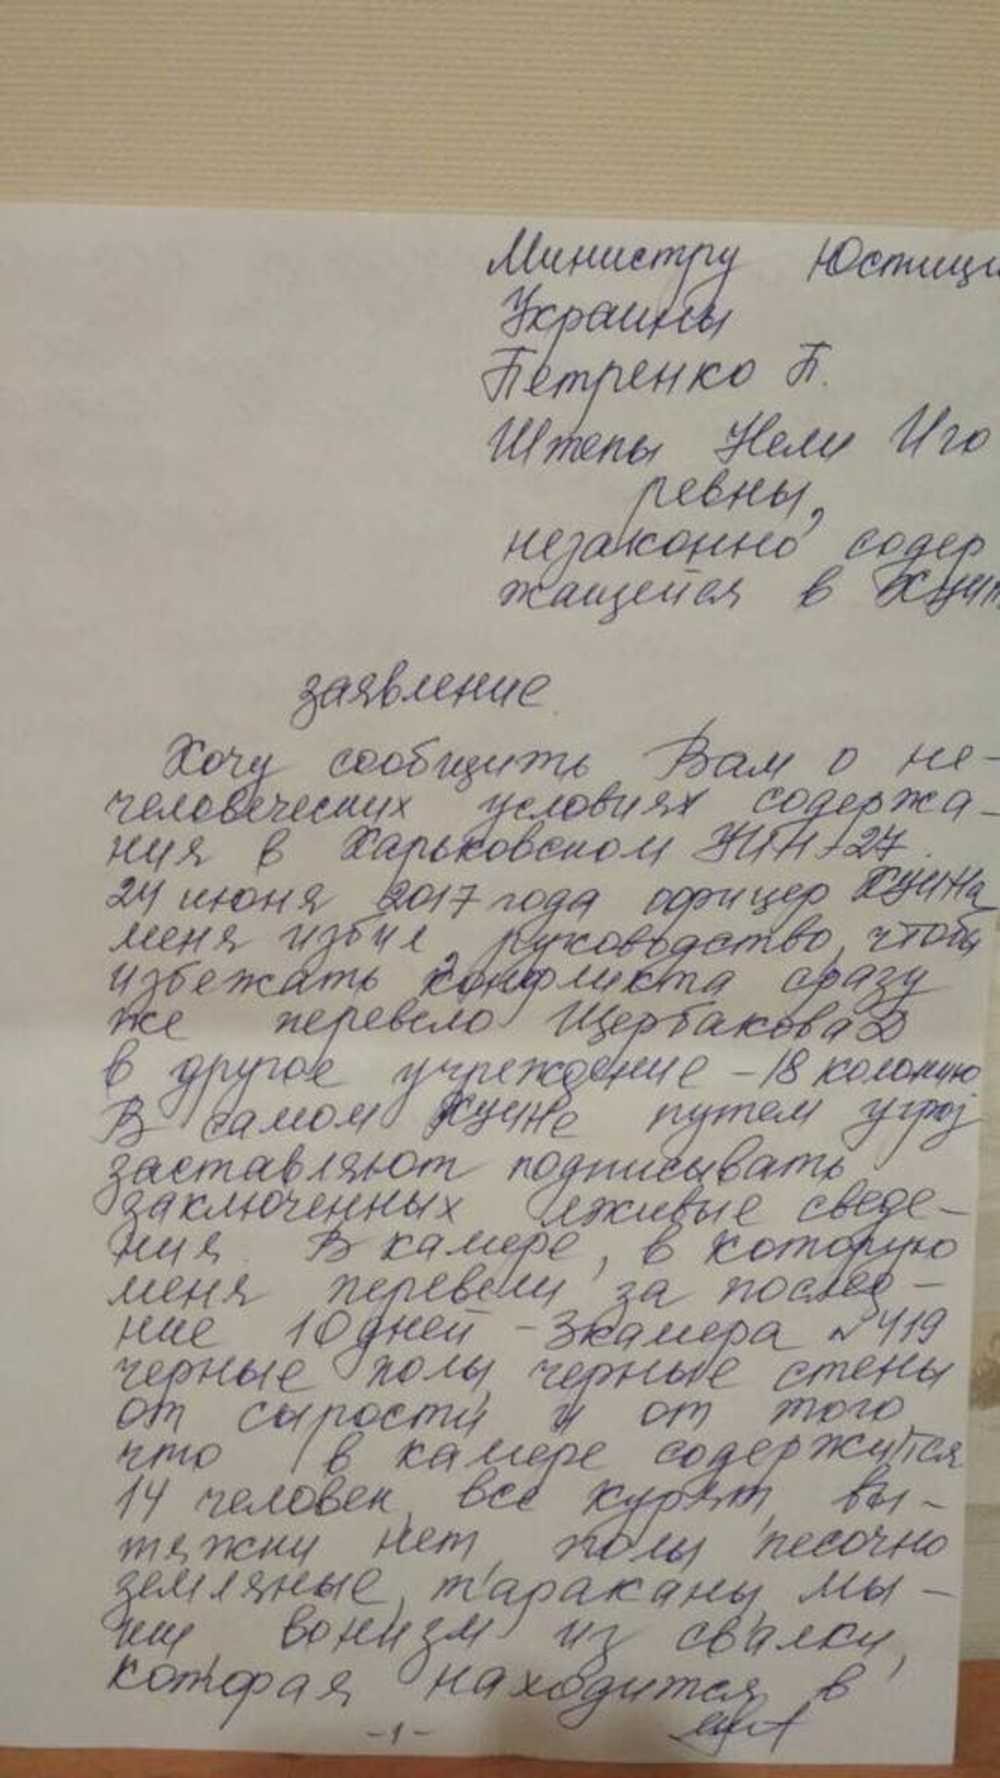 Министру Юстици
Украины
Петренко П.
Штепы Нели Иго
ревны,
незаконно содер
жащейся в
заявление
Хочу сообщить Вам о не-
человеческих условиях содержа-
ния в Харьковском 27.
24 июня 2017 года офицер
меня избил, руководство, чтобы
избежать конфликта сразу
же перевело Щербакова Д
в другое учреждение - 18 колонию
В самом путем угроз
заставляют подписывать
заключенных лживые сведе-
ния. В камере, в которую
меня перевели за послед-
ние 10 дней - 3 камера № 419
черные полы, черные стены
от сырости и от того,
что в камере содержится
14 человек, все курят, вы-
тяжки нет, полы песочно
земляные, тараканы, мы-
ши вонизм из свалки,
которая находится в
-1-